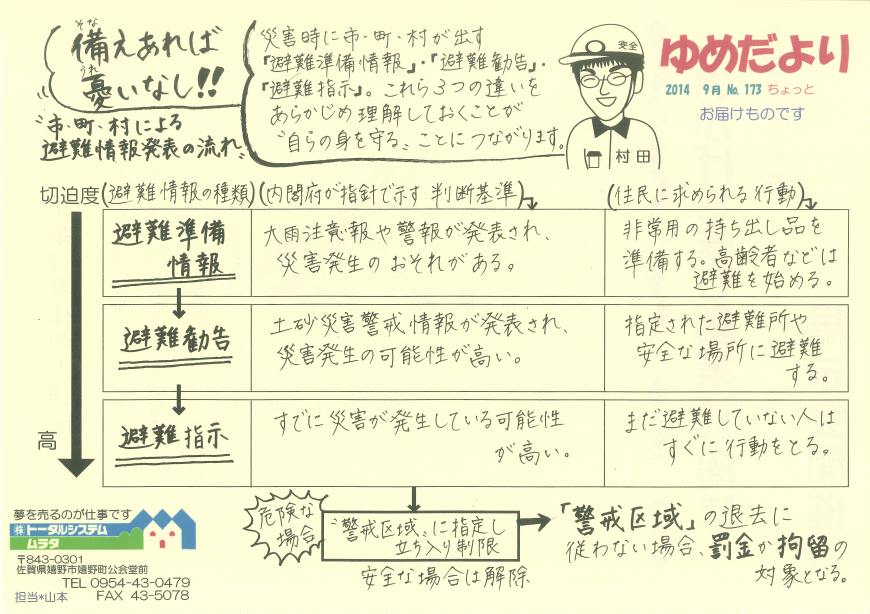 備えあれば
そな
憂いなし!!
うれ
"市・町・村による
避難情報発表の流れ"
災害時に市・町・村が出す
『避難準備情報』・『避難勧告』・
『避難指示』。これら3つの違いを
あらかじめ理解しておくことが
"自らの身を守る"ことにつながります。
安全
村田
ゆめだより
2014 9月 No.173 ちょっと
お届けものです
切迫度
(避難情報の種類)
(内閣府が指針で示す 判断基準)
(住民に求められる行動)
避難準備
情報
大雨注意報や警報が発表され、
災害発生のおそれがある。
非常用の持ち出し品を
準備する。高齢者などは
避難を始める。
避難勧告
土砂災害警戒情報が発表され、
災害発生の可能性が高い。
指定された避難所や
安全な場所に避難
する。
避難指示
すでに災害が発生している可能性
が高い。
まだ避難していない人は
すぐに行動をとる。
高
危険な
場合
"警戒区域"に指定し
立ち入り制限
安全な場合は解除
「警戒区域」の退去に
従わない場合、罰金か拘留の
対象となる。
夢を売るのが仕事です
㈱トータルシステム
ムラタ
〒843-0301
佐賀県嬉野市嬉野町公会堂前
TEL 0954-43-0479
担当*山本 FAX 43-5078